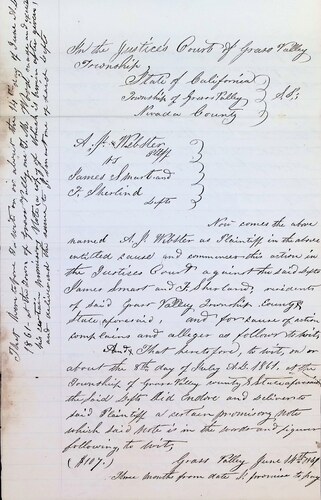 In the Justice's Court of Grass Valley
Township
State of California
Township of Grass Valley } SS.
Nevada County
A. J. Webster
vs Plff
James Smart and
F. Sherland
Defts
Now comes the above
named A. J. Webster as Plaintiff in the above
entitled cause and commences this action in
the Justices Court against the said Defts
James Smart and F. Sherland, residents
of said Grass Valley, Township County &
State aforesaid, and for cause of action
complains and alleges as follows to wit,
And, That heretofore, to wit, on or
about the 8th day of July A.D. 1861. at the
Township of Grass Valley county & State aforesaid
the said Defts did Endore and deliver to
said Plaintiff a certain promisory Note
which said Note is in the words and figures
following, to wit,
($107.) Grass Valley June 14th
Three months from date I promise to pay
That heretofore to wit on or about the 14th day of June A.D.
1861. at the town of Grass Valley
his certain promisory Note, a copy of which is herein after given;
and delivered the same to J. Smart one of said Defts